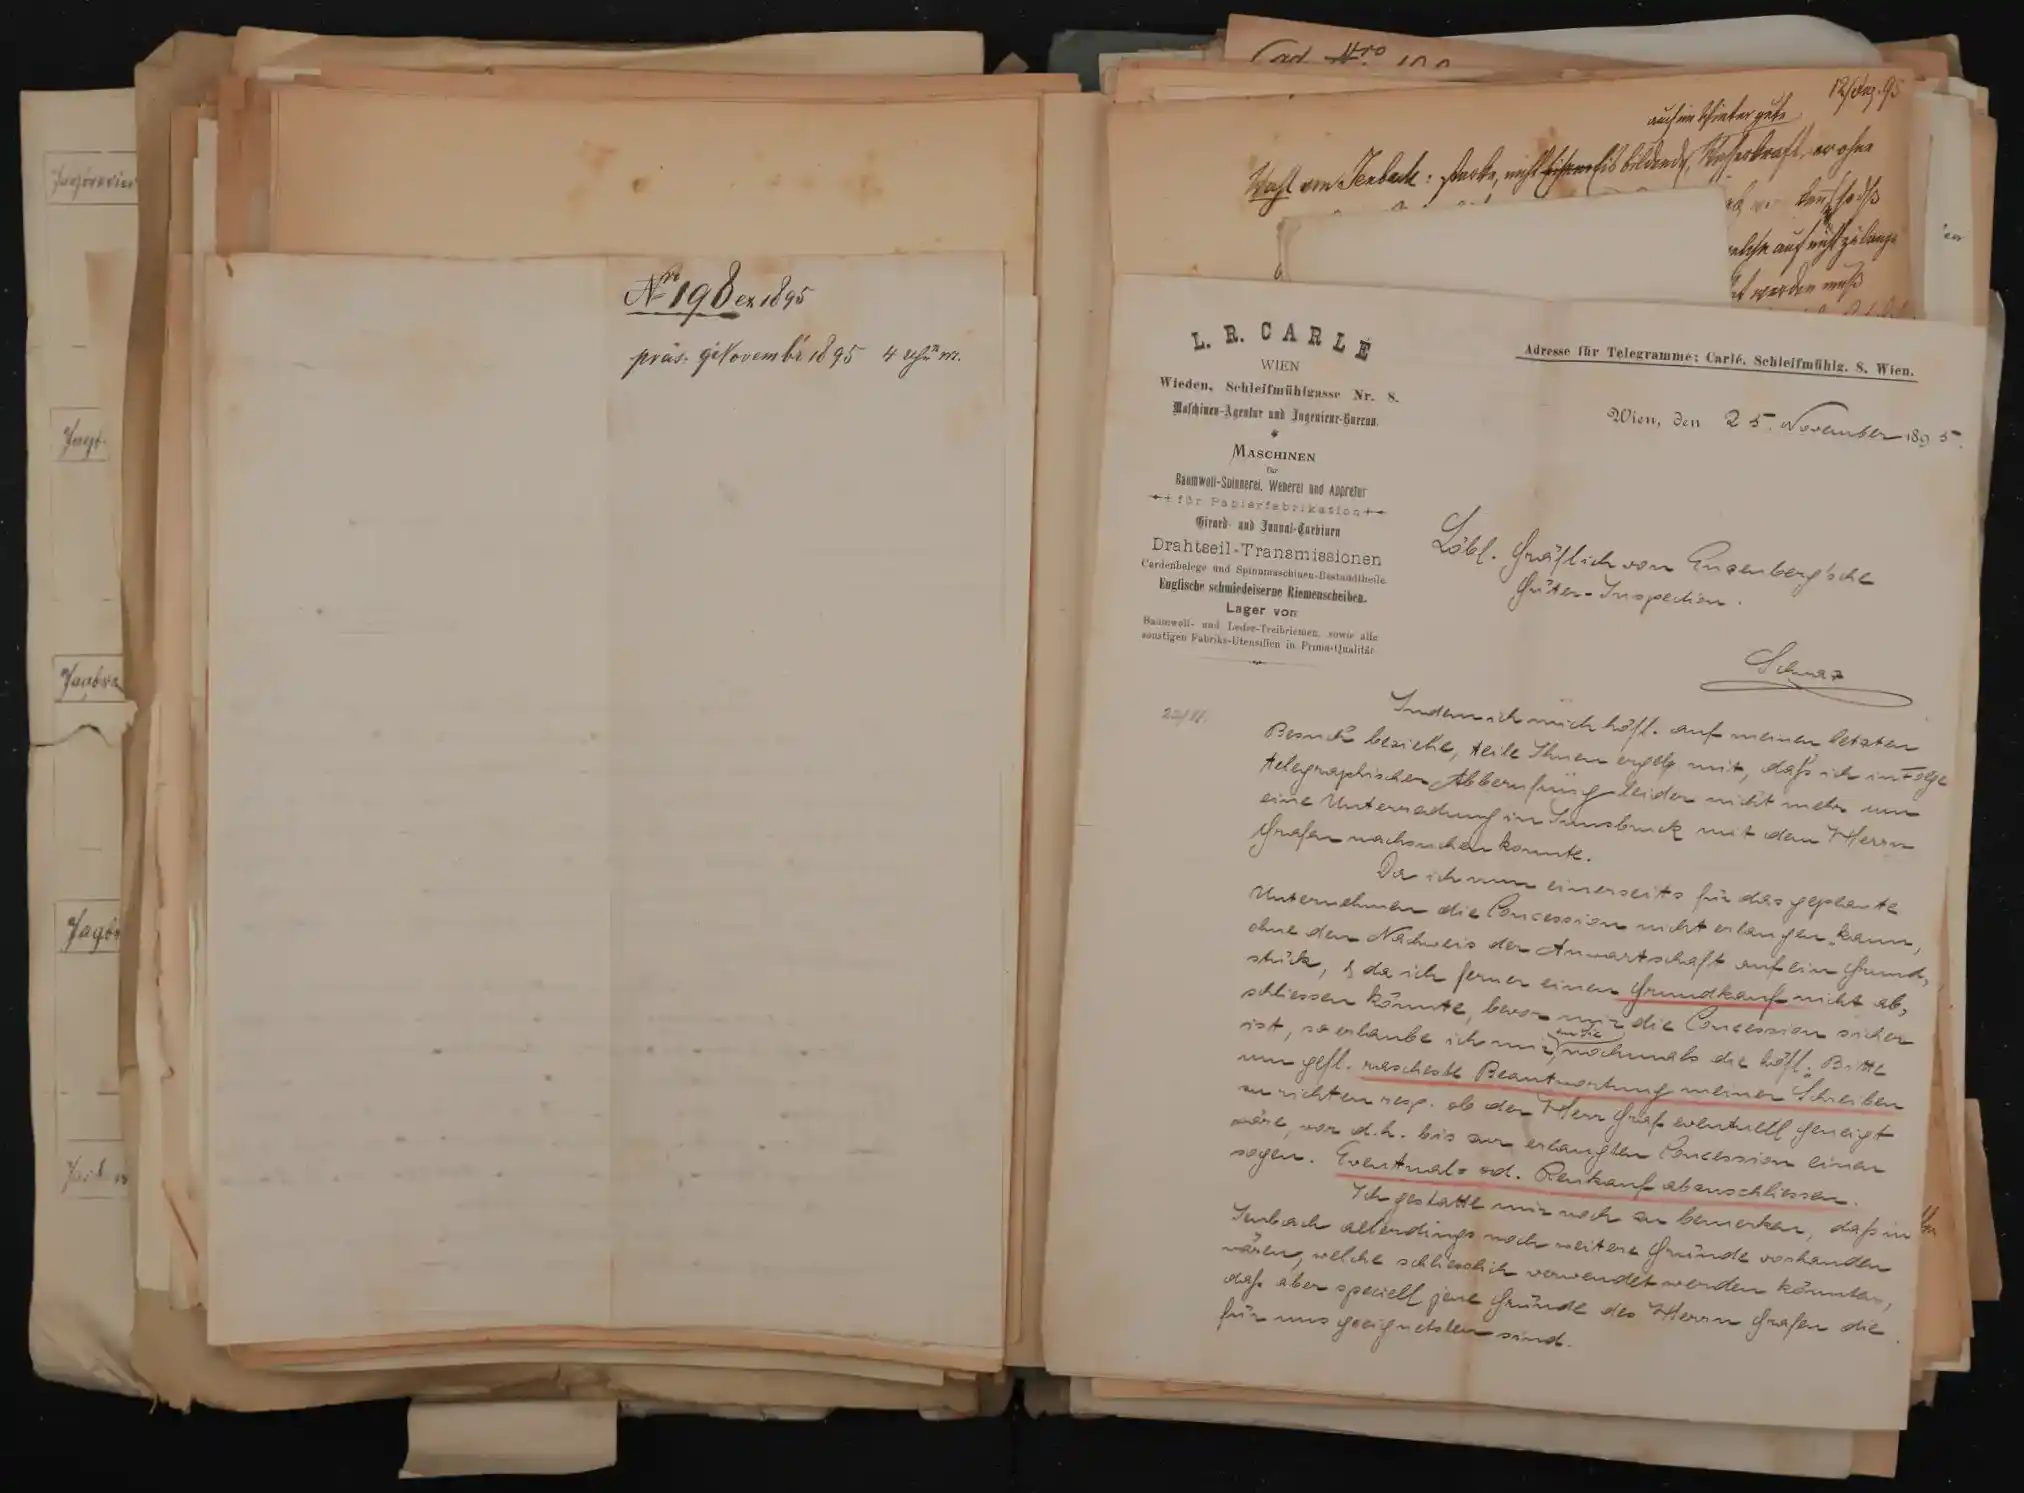 Nro 198 ex 1895
präs. 9 Novembr 1895 4 Uhr N.
Jagdrevier
Jagd-
Cad. Nro 100
12/Dez. 95
auch im Winter gute
Wahl von Jenbach: starke, nicht bildende, Wasserkraft, er ohne
werden muß
L. R. CARLÉ
WIEN
Wieden, Schleifmühlgasse Nr. 8.
Maschinen-Agentur und Ingenieur-Bureau.
MASCHINEN
für
Baumwoll-Spinnerei, Weberei und Appretur
für Papierfabrikation
Girard- und Jonval-Turbinen
Drahtseil-Transmissionen
Cardenbelege und Spinnmaschinen-Bestandtheile.
Englische schmiedeiserne Riemenscheiben.
Lager von
Baumwoll- und Leder-Treibriemen, sowie alle
sonstigen Fabriks-Utensilien in Prima-Qualität
Adresse für Telegramme: Carlé, Schleifmühlg. 8, Wien.
Wien, den 25. November 1895.
Löbl. Gräflich von Enzenberg'sche
Güter-Inspection.
Schwaz
22/11.
Indem ich mich höfl. auf meinen letzten
Besuch beziehe, teile Ihnen ergeb. mit, daß ich in Folge
telegraphischer Abberufung leider nicht mehr um
eine Unterredung in Innsbruck mit dem Herrn
Grafen nachsuchen konnte.
Da ich nun einerseits für das geplante
Unternehmen die Concession nicht erlangen kann,
ohne den Nachweis der Anwartschaft auf ein Grund-
stück, & da ich ferner einen Grundkauf nicht ab-
schliessen könnte, bevor mir die Concession sicher
ist, so erlaube ich mir, nochmals die höfl. Bitte
um gefl. rascheste Beantwortung meiner Schreiben
zu richten resp. ob der Herr Graf eventuell geneigt
wäre, vor d.h. bis zur erlangten Concession einen
sogen. Eventual- od. Reukauf abzuschliessen.
Ich gestatte mir noch zu bemerken, daß in
Jenbach allerdings noch weitere Gründe vorhanden
wären, welche schliesslich verwendet werden könnten,
daß aber speciell jene Gründe des Herrn Grafen die
für uns geeignetsten sind.